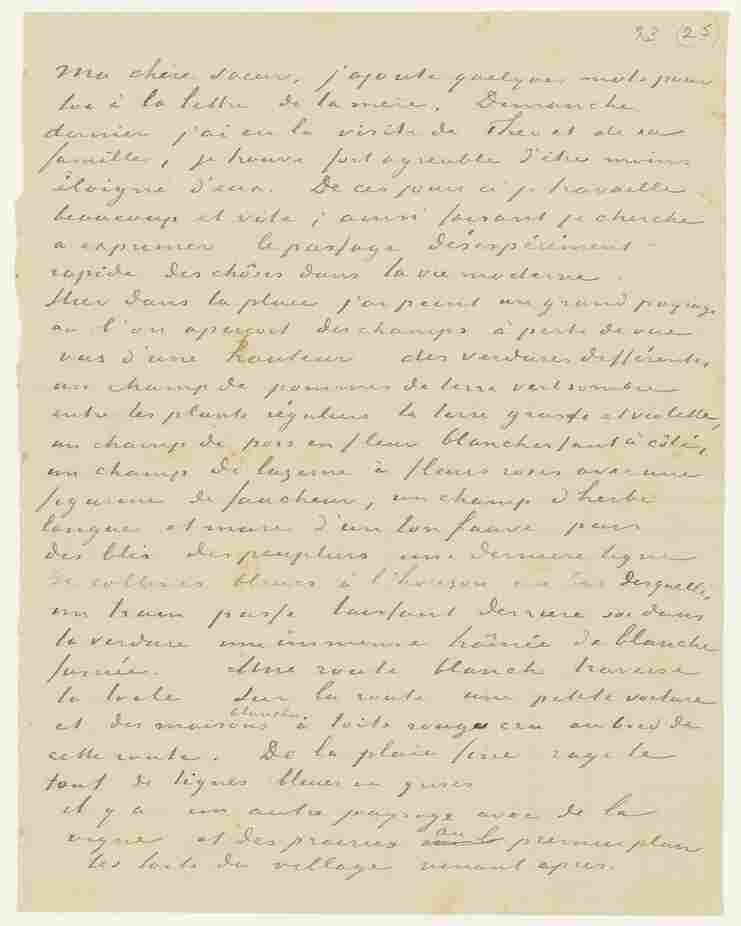 23 (25)
Ma chère soeur, j'ajoute quelques mots pour
toi à la lettre de la mère. Dimanche
dernier j'ai eu la visite de Theo et de sa
famille, je trouve fort agreable d'être moins
éloigné d'eux. De ces jours ci je travaille
beaucoup et vite; ainsi faisant je cherche
a exprimer le passage désespérément
rapide des chôses dans la vie moderne.
Hier dans la pluie j'ai peint un grand paysage
ou l'on aperçoit des champs à perte de vue
vus d'une hauteur des verdures différentes
un champ de pommes de terre vert sombre
entre les plants réguliers la terre grasse et violette,
un champ de pois en fleur blanchissant à côté,
un champ de luzerne à fleurs roses avec une
figurine de faucheur, un champ d'herbe
longue et mure d'un ton fauve puis
des blés des peupliers une derniere ligne
de collines bleues à l'horizon au bas desquelles
un train passe laissant derriere soi dans
la verdure une immense trâinée de blanche
fumée. Une route blanch traverse
la toile Sur la route une petite voiture
et des maisons blanches à toits rouge cru au bord de
cette route. De la pluie fine raye le
tout de lignes bleues ou grises
il y a un autre paysage avec de la
vigne et des prairies au premier plan
les toits du village venant après.